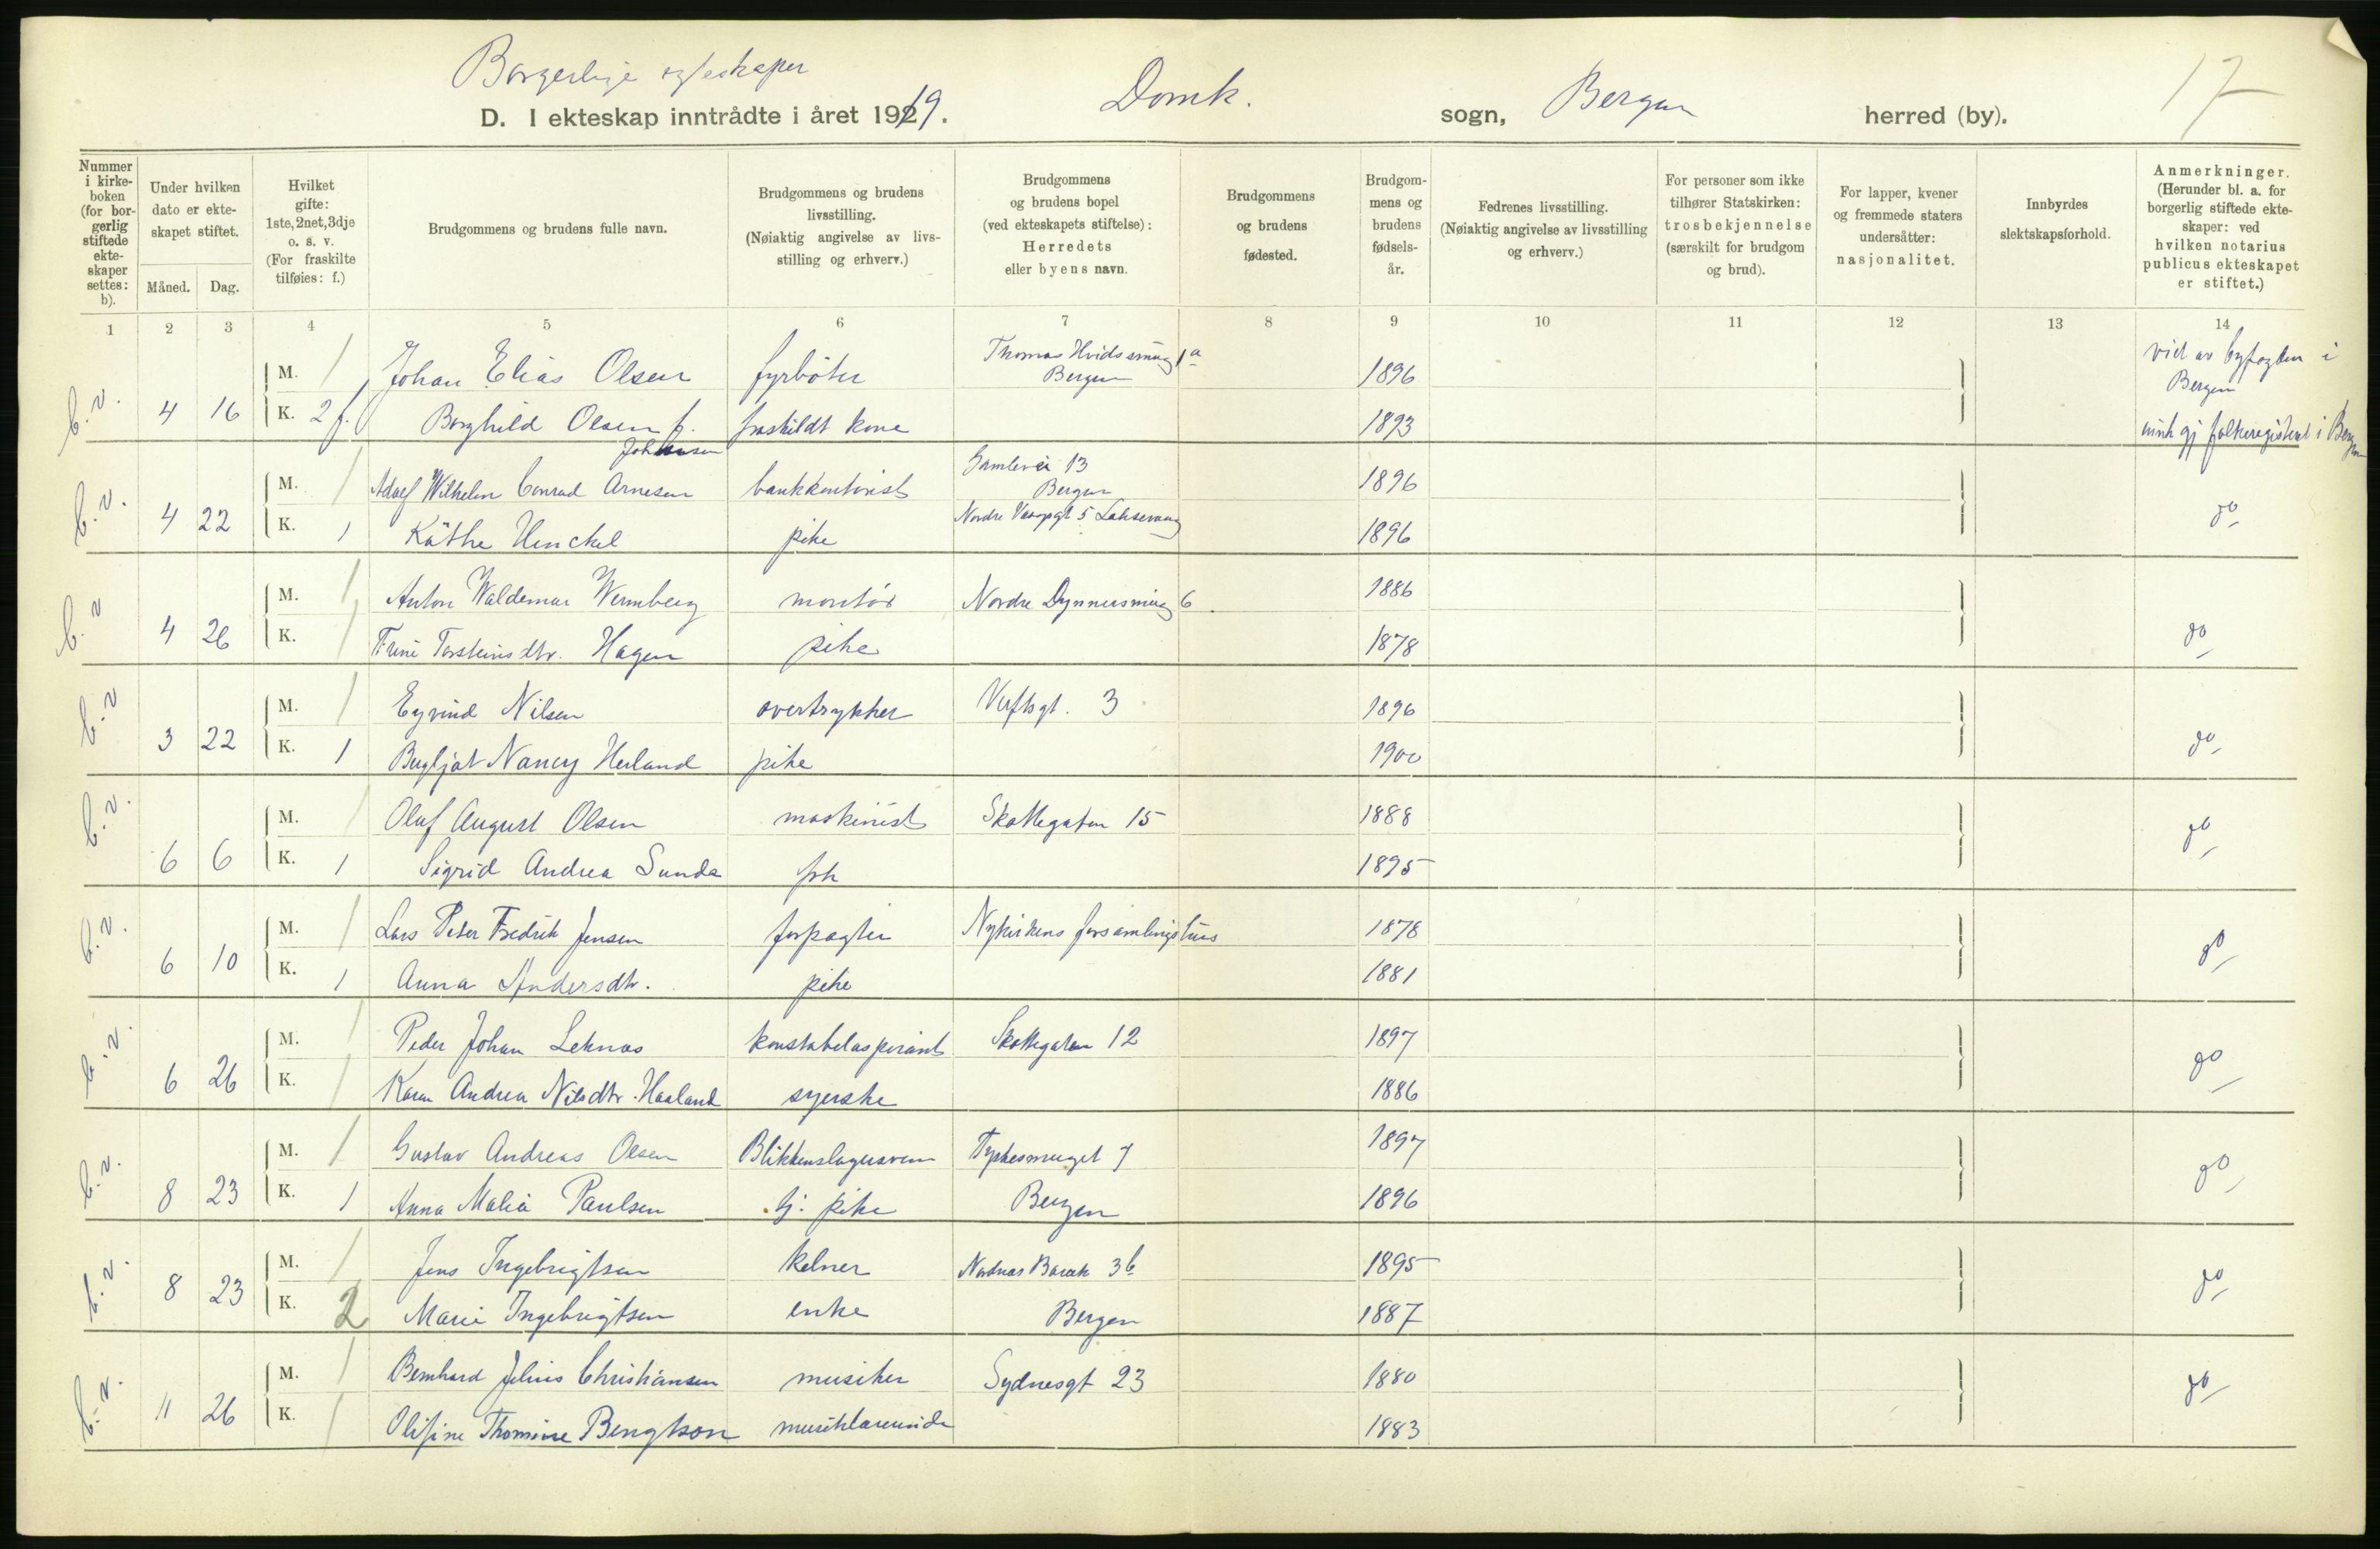 Borgerlige egteskaper
D. I ekteskap inntrådte i året 1919. Domk. sogn, Bergen herred (by). 17
Nummer i kirkeboken (for borgerlig stiftede ekteskaper settes: b).
Under hvilken dato er ekteskapet stiftet.
Måned. Dag.
Hvilket gifte: 1ste, 2net, 3dje o. s. v. (For fraskilte tilføies: f.)
Brudgommens og brudens fulle navn.
Brudgommens og brudens livsstilling. (Nøiaktig angivelse av livsstilling og erhverv.)
Brudgommens og brudens bopel (ved ekteskapets stiftelse): Herredets eller byens navn.
Brudgommens og brudens fødested.
Brudgommens og brudens fødselsår.
Fedrenes livsstilling. (Nøiaktig angivelse av livsstilling og erhverv.)
For personer som ikke tilhører Statskirken: trosbekjennelse (særskilt for brudgom og brud).
For lapper, kvener og fremmede staters undersåtter: nasjonalitet.
Innbyrdes slektskapsforhold.
Anmerkninger. (Herunder bl. a. for borgerlig stiftede ekteskaper: ved hvilken notarius publicus ekteskapet er stiftet.)
1 2 3 4 5 6 7 8 9 10 11 12 13 14
M. 1 Johan Elias Olsen fyrbøter Thomas Hvidssmug 1a Bergen 1896 viet av byfogden i Bergen
b.v. 4 16 K. 2 f. Borghild Olsen f. Johansen fraskildt kone 1893 folkeregisteret i Bergen
M. 1 Adolf Wilhelm Conrad Arnesen bankkontorist Gamlevei 13 Bergen 1896
b.v. 4 22 K. 1 Käthe Henckel pike Nordre 5 Laksevaag 1896 do
M. 1 Anton Waldemar Wermberg montør Nordre Dynnersmug 6 1886
b.v 4 26 K. 1 Trine Torsteinsdtr. Hagen pike 1878 do
M. 1 Eyvind Nilsen overtrykker Verftsgt. 3 1896
b.v 3 22 K. 1 Bergljot Nancy Herland pike 1900 do
M. 1 Oluf August Olsen maskinist Skottegaten 15 1888
b.v. 6 6 K. 1 Sigrid Andrea Sunde frk 1895 do
M. 1 Lars Peter Fredrik Jensen forpagter Nykirkens forsamlingshus 1878
b.v. 6 10 K. 1 Anna Andersdtr. pike 1881 do
M. 1 Peder Johan Leknas konstabelaspirant Skottegaten 12 1897
b.v. 6 26 K. 1 Karen Andrea Nilsdtr. Haaland syerske 1886 do
M. 1 Gustav Andreas Olsen Blikkenslagersvenn Tyskesmuget 7 1897
b.v. 8 23 K. 1 Anna Malia Paulsen tj. pike Bergen 1896 do
M. 1 Jens Ingebrigtsen kelner Nordnes Barak 3b 1895
b.v. 8 23 K. 2 Marie Ingebrigtsen enke Bergen 1887 do
M. 1 Bernhard Julius Christiansen musiker Sydnesgt 23 1880
b.v. 11 26 K. 1 Olifine Thomine Bengtson musiklærerinde 1883 do